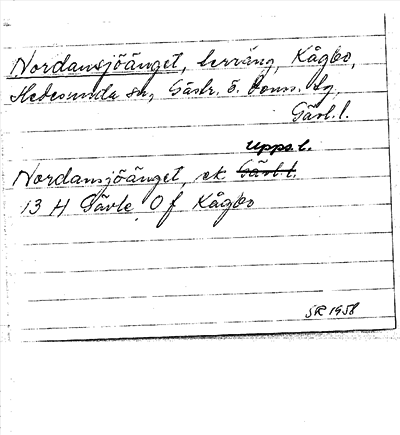 Nordansjöänget, terräng, Kågbo,
Hedesunda sn, Gästr. ö. doms. tg,
Gävl. l.
Upps. l.
Nordansjöänget, ek Gävl. l.
13 H Gävle 0 f Kågbo
SR 1958